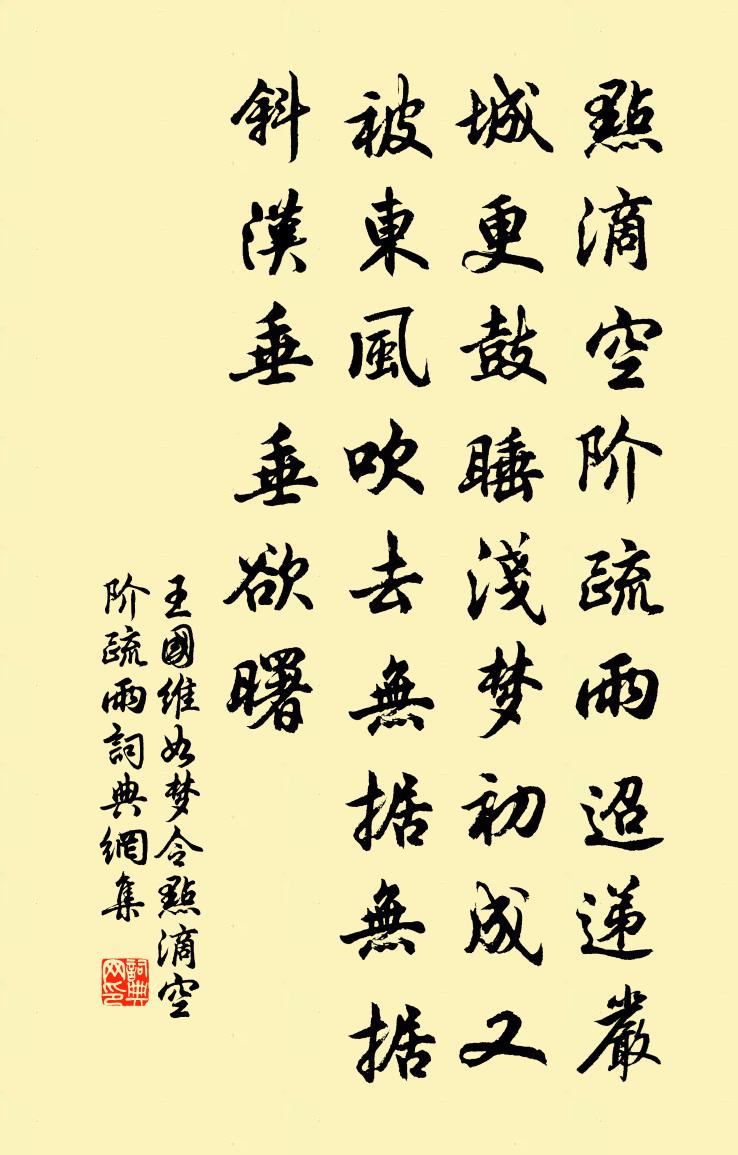 點滴空阶疏雨迢递嚴
城更鼓睡淺梦初成又
被東風吹去無据無据
斜漢垂垂欲曙
王國維如梦令點滴空
阶疏雨詞典網集
詞典
网印